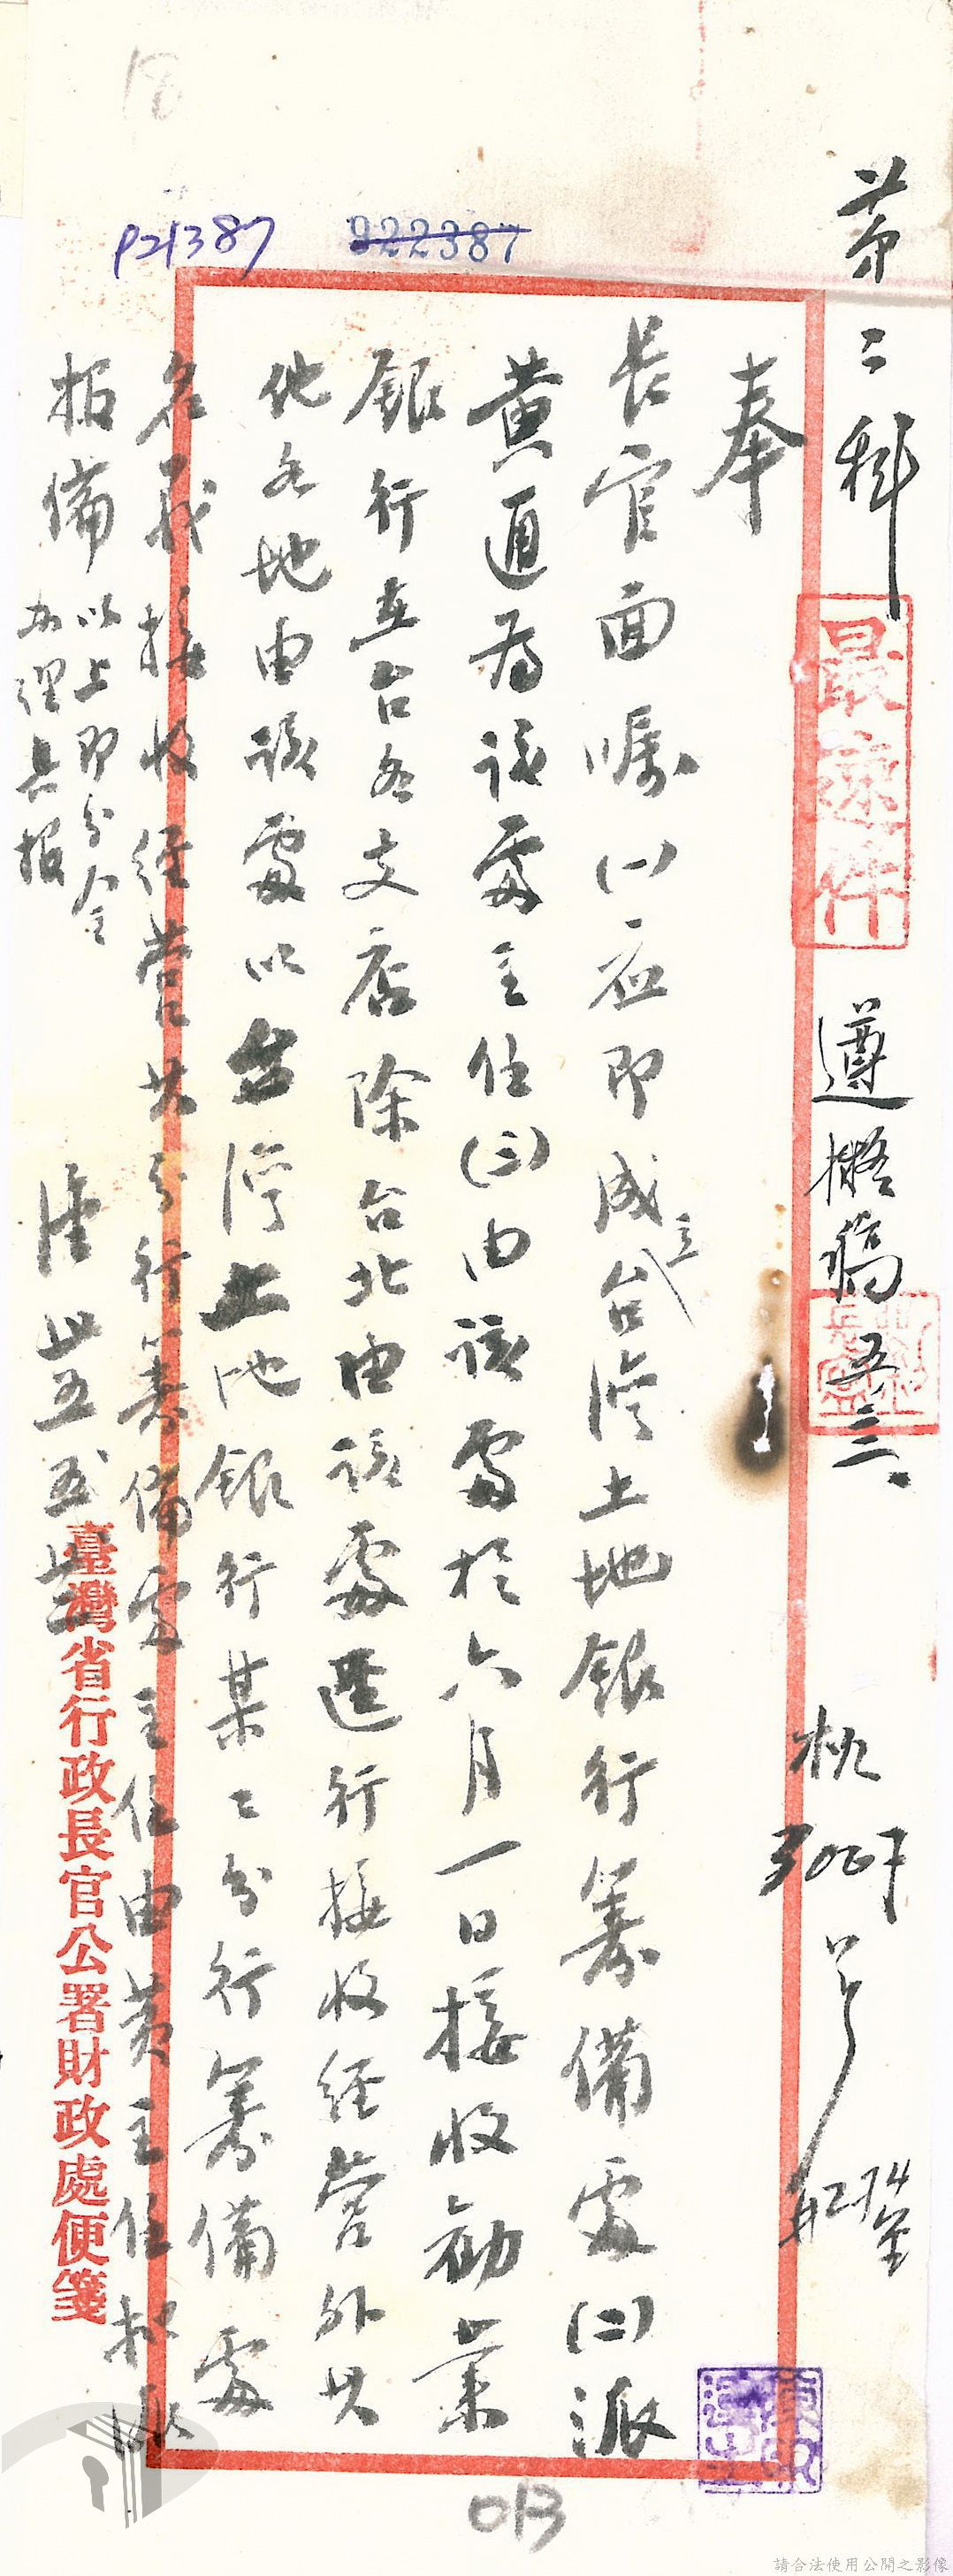 第二科
最速件
遵擬稿 五、三、
奉
長官面嘱(一)应即成立台湾土地銀行籌備處(二)派
黄通为該處主任(三)由該處於六月一日接收勧業
銀行在台各支店除台北由該處逕行接收経营外其
他各地由該處以台湾土地銀行某々分行籌備處
名義接收経营其分行籌備處主任由黄主任派
报備 以上即分令
办理具报
臺灣省行政長官公署財政處便箋
P21387
922387
013
請合法使用公開之影像